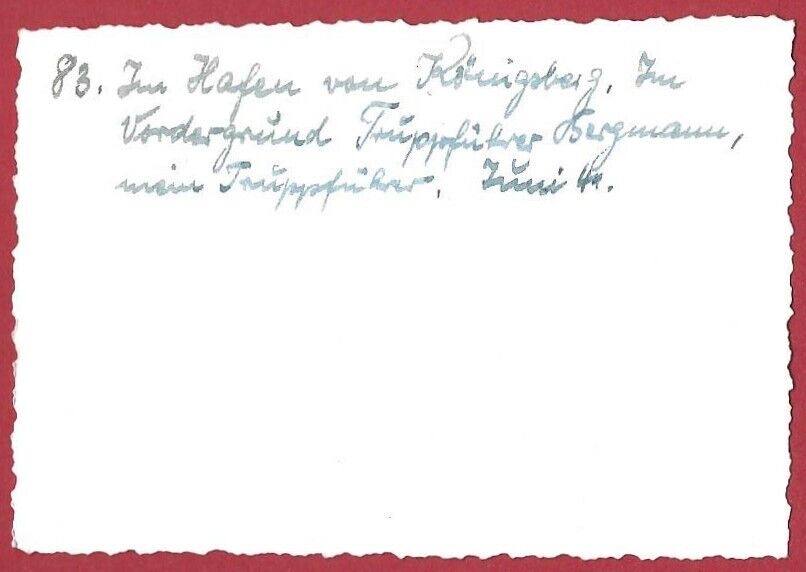 83. Im Hafen von Königsberg. Im
Vordergrund Truppführer Bergmann,
mein Truppführer. Juni 41.